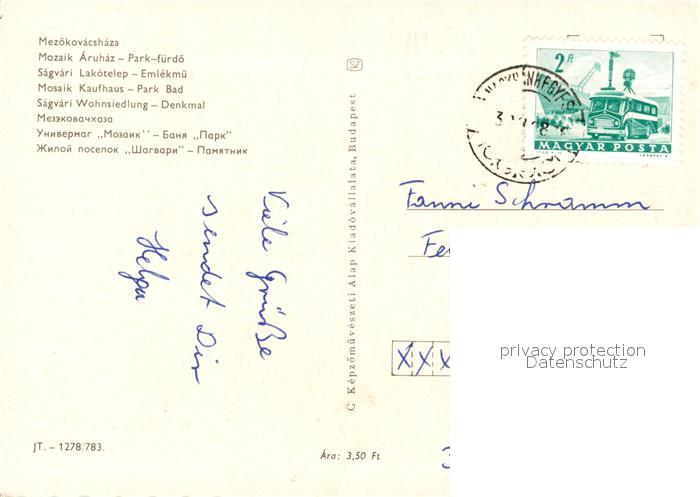 Mezőkovácsháza
Mozaik Áruház – Park-fürdő
Ságvári Lakótelep – Emlékmű
Mosaik Kaufhaus – Park Bad
Ságvári Wohnsiedlung – Denkmal
Мезэковачхаза
Универмаг „Мозаик" – Баня „Парк"
Жилой поселок „Шагвари" – Памятник
Viele Grüße
sendet Dir
Helga
JT. – 1278/783.
Ára: 3,50 Ft
C Képzőművészeti Alap Kiadóvállalata, Budapest
SZ
2 Ft
MAGYAR POSTA
Fanni Schramm
XXX
privacy protection
Datenschutz